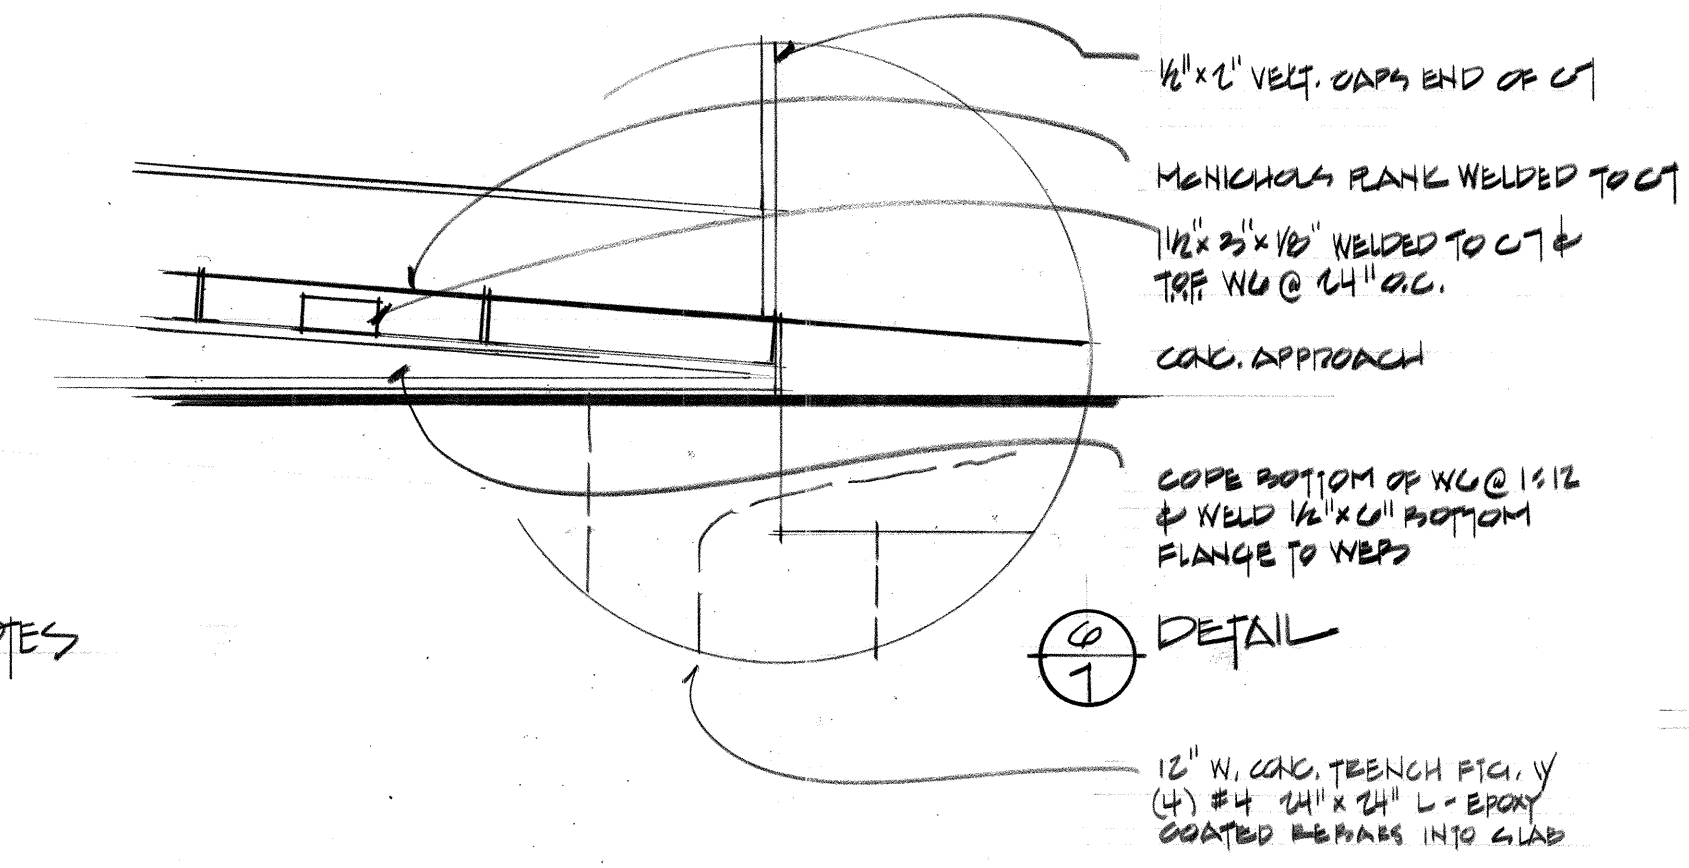 1/2" x 2" VERT. CAPS END OF C7
McNICHOLS PLANK WELDED TO C7
1 1/2" x 3" x 1/8" WELDED TO C7 &
T.O.F. W6 @ 24" O.C.
CONC. APPROACH
COPE BOTTOM OF W6 @ 1:12
& WELD 1/2" x 6" BOTTOM
FLANGE TO WEB
OTES
6 DETAIL
7
12" W. CONC. TRENCH FTG. W/
(4) #4 24" x 24" L - EPOXY
COATED REBARS INTO SLAB